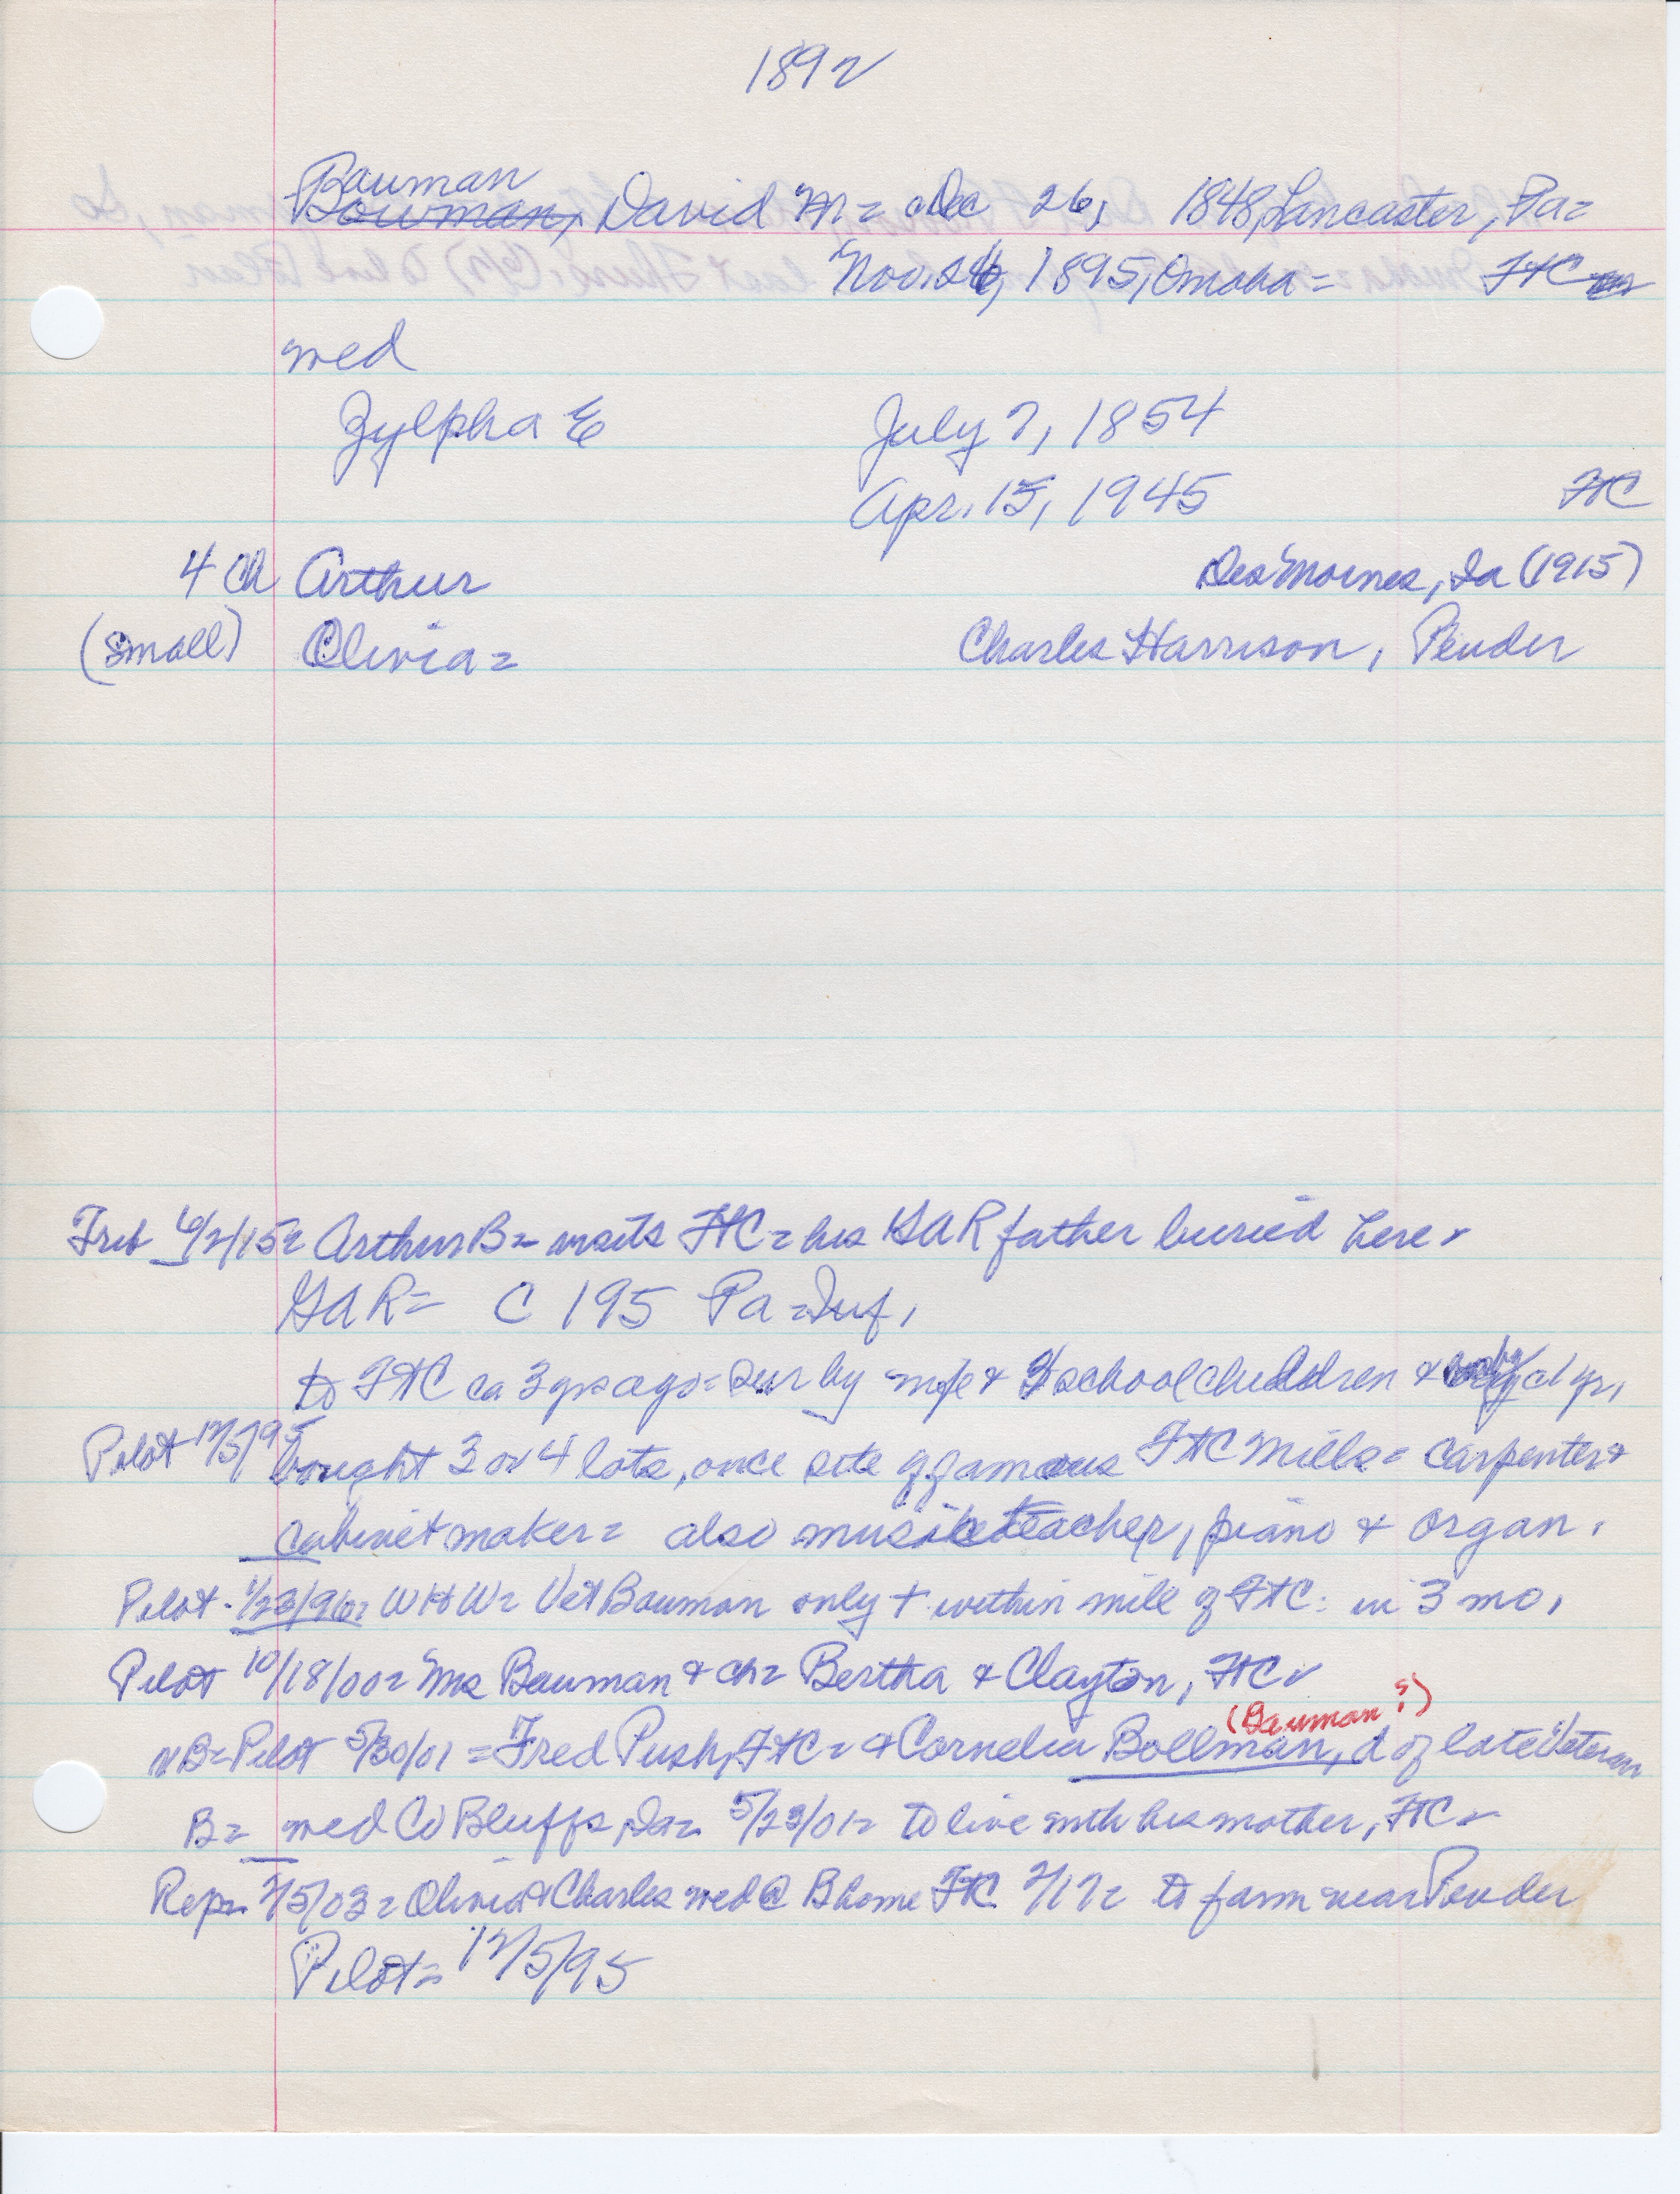 1892
Bauman
Bowman, David M = Dec 26, 1848, Lancaster, Pa =
Nov. 26, 1895, Omaha = FtC
med
Zylpha E July 7, 1854
Apr. 15, 1945 FtC
4 Ch Arthur Des Moines, Ia (1915)
(small) Olivia = Charles Harrison, Pender
Trib 6/2/15 = Arthur B = visits FtC = his GAR father buried here.
GAR = C 195 Pa = Inf.
to FtC ca 3 yrs ago = sur by wife & 3 school children & 1 yr,
Pilot 12/5/95 bought 3 or 4 lots, once site of famous FtC Mills = carpenter &
cabinet maker = also music teacher, piano & organ.
Pilot - 1/23/96 = WHW = Vet Bauman only + within mile of FtC : in 3 mo,
Pilot 10/18/00 = Mrs Bauman & ch = Bertha & Clayton, FtC
(Bauman ?)
NB = Pilot 5/30/01 = Fred Push, FtC = & Cornelia Bollman, d of late Veteran
B = med Co Bluffs, Ia = 5/23/01 = to live with his mother, FtC
Rep = 3/5/03 = Olivia & Charles med @ B home FtC 2/17 = to farm near Pender
Pilot = 12/5/95